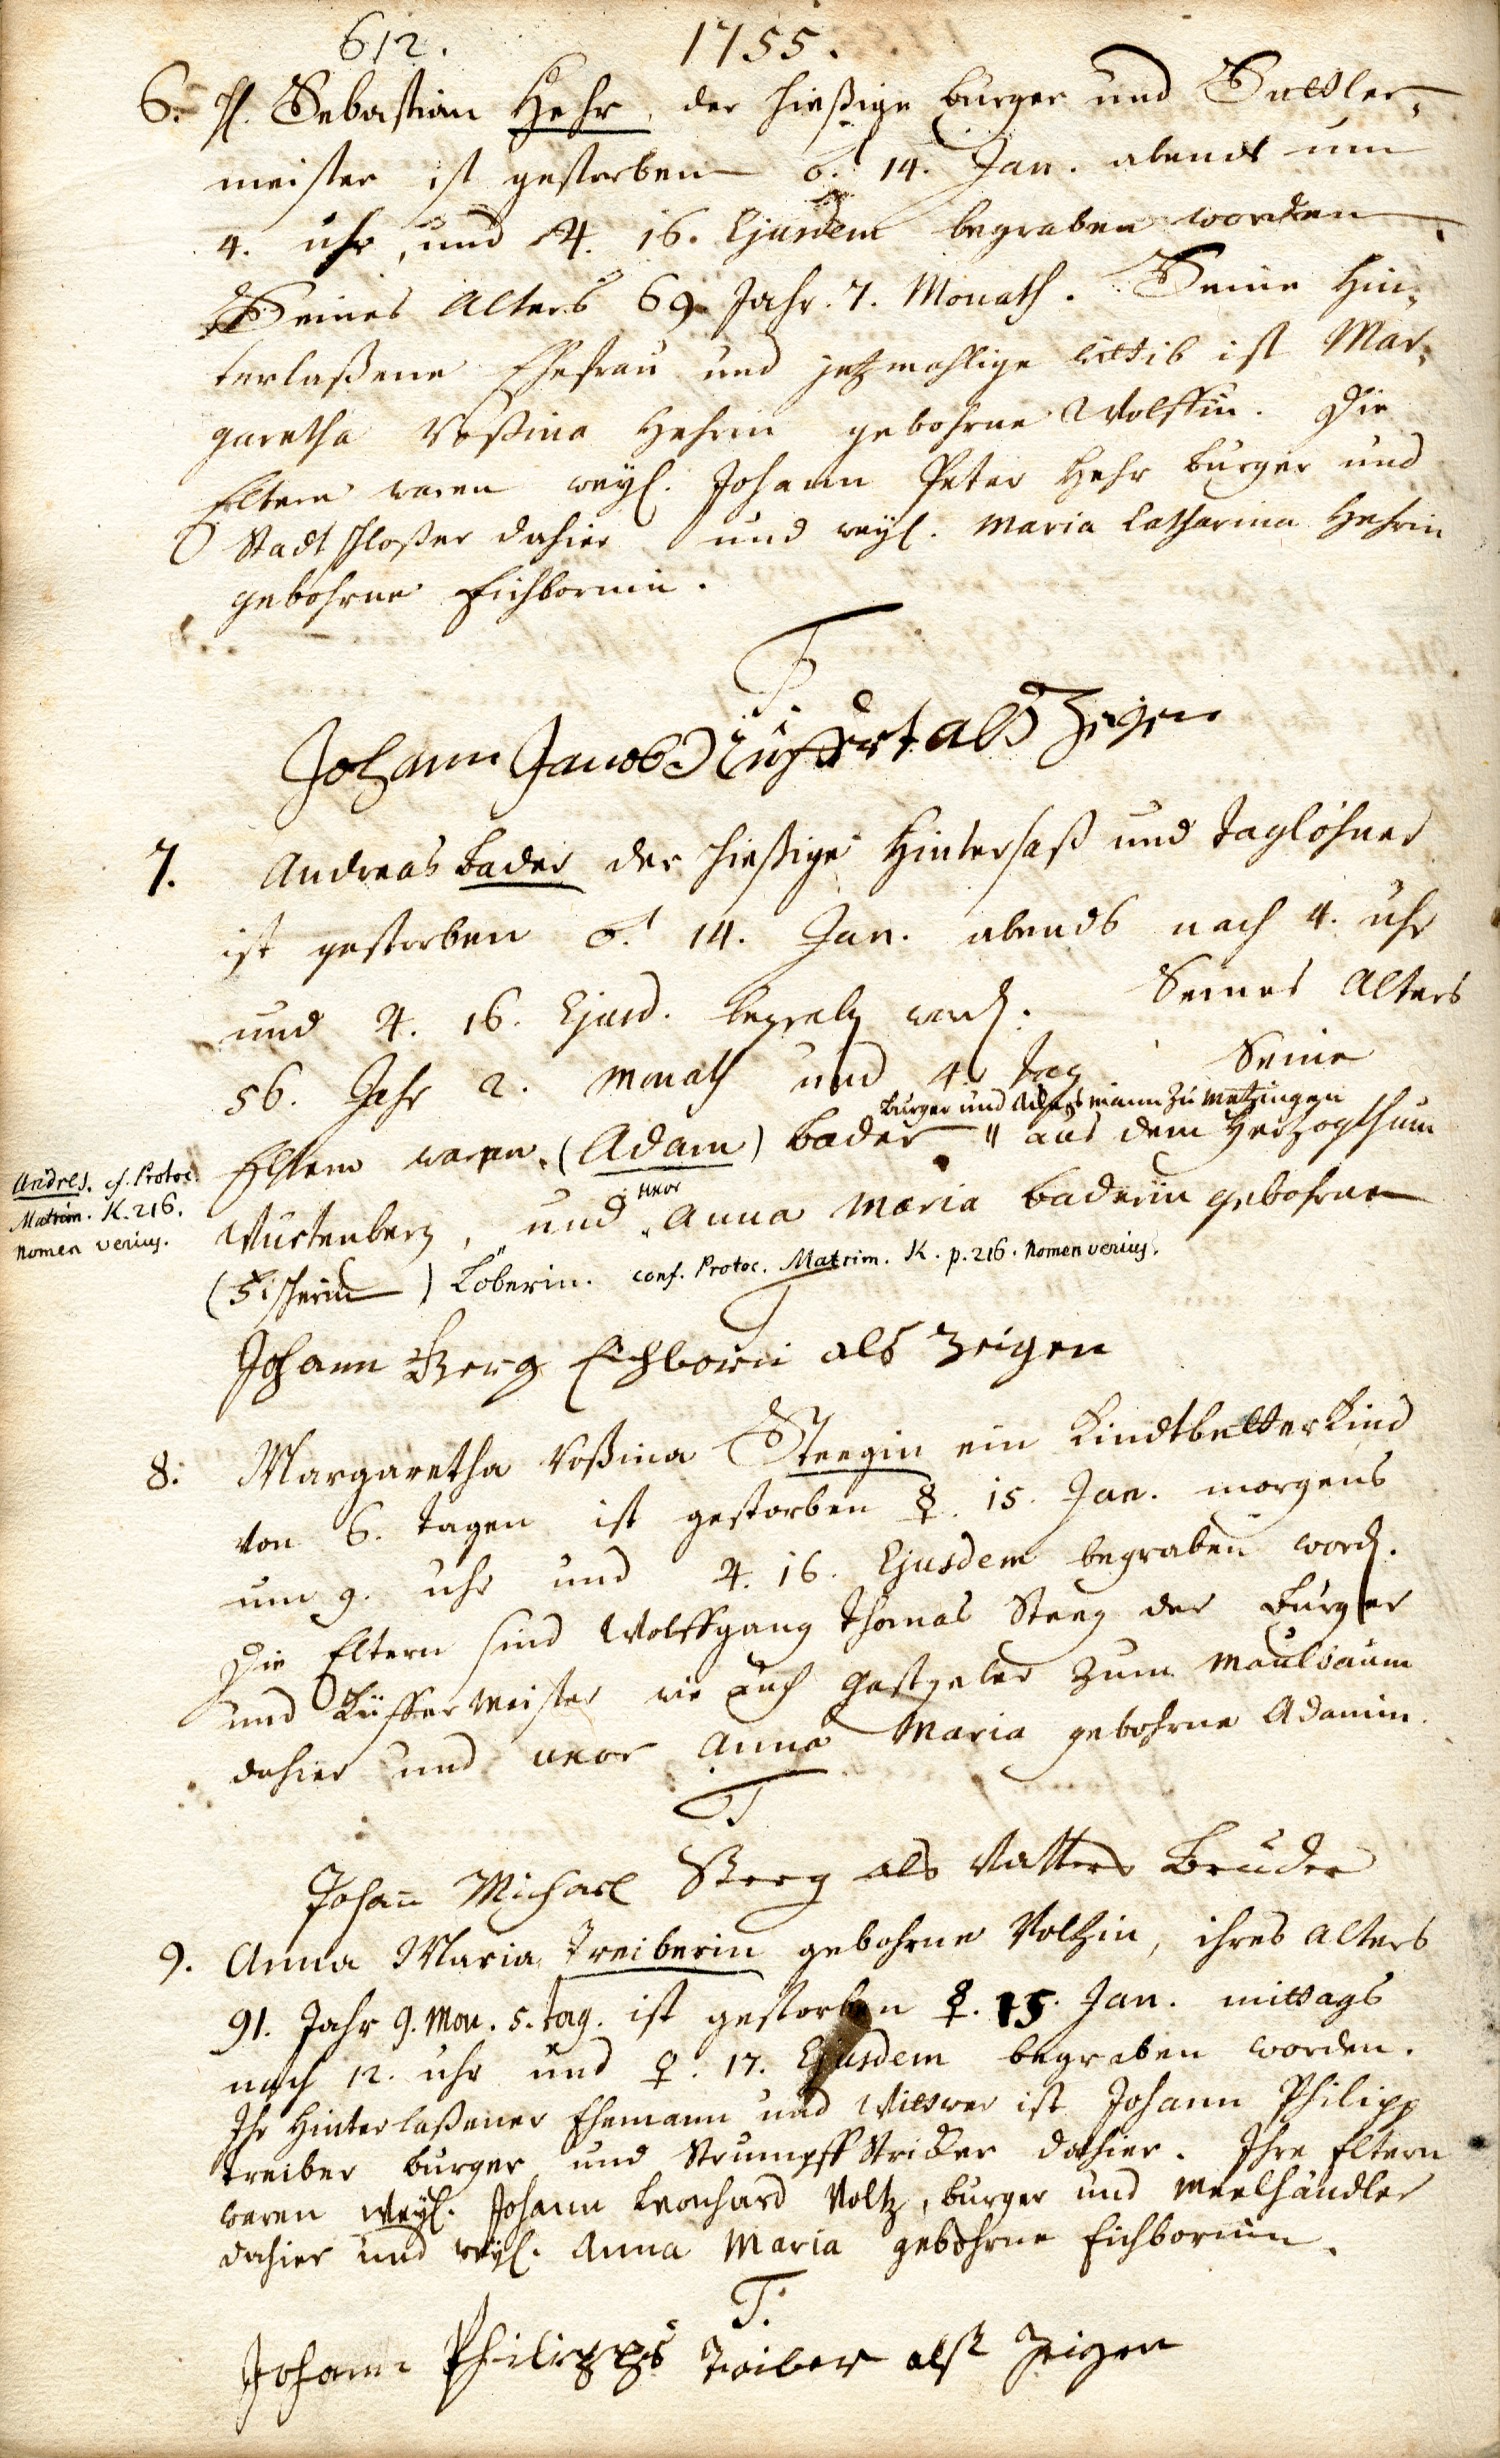 612. 1755.
6. H. Sebastian Hehr, der hießige burger und Sattler-
meister ist gestorben ♂. 14. Jan. abends um
4. uhr, und ♃. 16. Ejusdem begraben worden.
Seines Alters 69. Jahr. 7. Monath. Seine hin-
terlaßene Ehefrau und jetzmahlige wittib ist Mar-
garetha Rosina Hehrin gebohrne Wolffin. Die
Eltern waren weyl. Johann Peter Hehr burger und
Stadtschloßer dahier und weyl. Maria Catharina Hehrin
gebohrne Eichbornin.
T
Johann Jacob als Zeigen
7. Andreas Bader der hießige Hintersaß und Taglöhner
ist gestorben ♂. 14. Jan. abends nach 4. uhr
und ♃. 16. Ejusd. begrab. word. Seines Alters
56. Jahr 2. Monath und 4. Tag. Seine
burger und Ackersmann zu Metzingen
Eltern waren (Adam) Bader " aus dem Herzogthum
Andres. cf. Protoc.
Matrim. K. 216.
nomen verius.
uxor
Würtenberg, und " Anna Maria Baderin gebohrne
(Fischerin) Löberin. conf. Protoc. Matrim. K. p. 216. nomen verius.
T
Johann Georg Eichborn als Zeigen
8. Margaretha Rosina Steegin ein Kindtbetterkind
von 6. Tagen ist gestorben ☿. 15. Jan. morgens
um 9. uhr und ♃. 16. Ejusdem begraben word.
Die Eltern sind Wolffgang Thomas Steeg der burger
und Küffermeister wie auch Gastgeber zum Maulbaum
dahier und uxor Anna Maria gebohrne Adamin.
T
Johann Michael Steeg als Vatters Bruder
9. Anna Maria Treiberin gebohrne Voltzin, ihres Alters
91. Jahr 9. Mon. 5. Tag. ist gestorben ☿. 15. Jan. mittags
nach 12. uhr und ♀. 17. Ejusdem begraben worden.
Ihr hinterlaßener Ehemann und Wittwer ist Johann Philipp
Treiber burger und Strumpffstricker dahier. Ihre Eltern
waren weyl. Johann Leonhard Voltz, burger und Meelhändler
dahier und weyl. Anna Maria gebohrne Eichbornin.
T.
Johann Philipps Treiber alß Zeigen